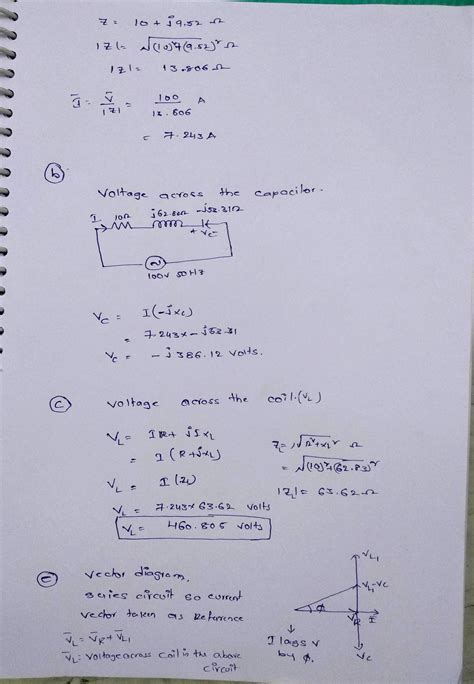 Z = 10 + j9.52 Ω
|Z| = √(10)²+(9.52)² Ω
|Z| = 13.806 Ω
Ī = V̄/|Z| = 100/13.806 A
= 7.243 A
(b)
Voltage across the capacitor.
I 10Ω j62.83Ω -j53.31Ω
+ Vc -
100V 50HZ
Vc = I(-jxc)
= 7.243x-j53.31
Vc = -j386.12 volts.
(c) voltage across the coil.(VL)
VL = IR+ jIXL
= I(R+jXL)
VL = I(ZL)
VL = 7.243x63.62 volts
VL = 460.805 volts
Z = √R²+XL² Ω
= √(10)²+(62.83)²
|ZL| = 63.62 Ω
(e) vector diagram,
series circuit so current
vector taken as Reference
V̄L = V̄R+V̄L1
V̄L: Voltage across coil in the above
circuit
VL1
VL1-VC
φ
VR I
VC
I lags V
by φ.